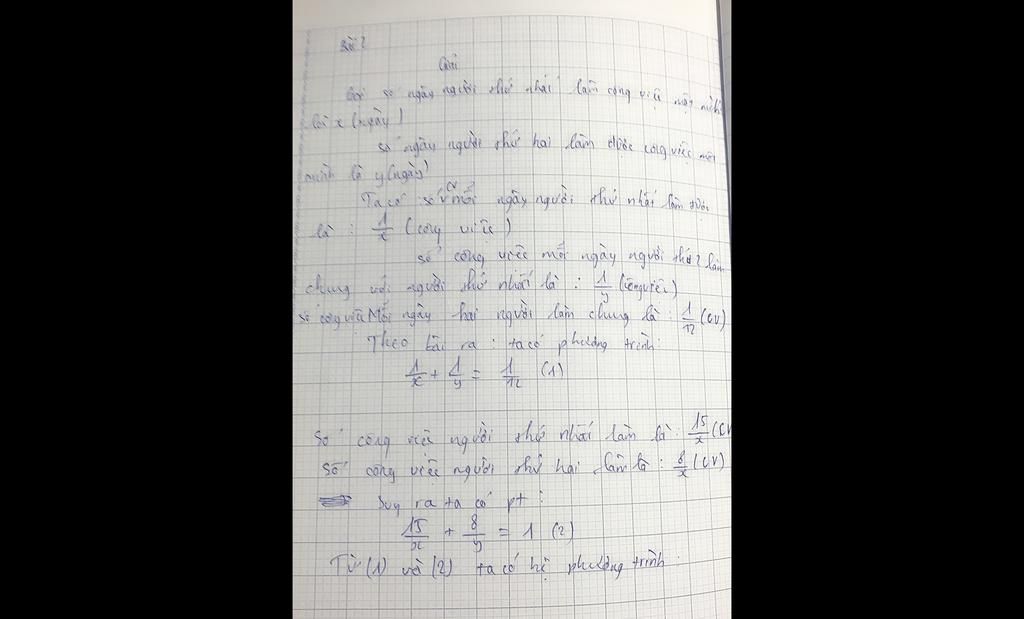 Bài 2
Giải
Gọi số ngày người thứ nhất làm công việc một mình
là x (ngày)
số ngày người thứ hai làm được công việc một
mình là y (ngày)
Ta có số cv mỗi ngày người thứ nhất làm được
là : 1/x (công việc)
số công việc mỗi ngày người thứ 2 làm
chung với người thứ nhất là : 1/y (công việc)
số công việc Mỗi ngày hai người làm chung là : 1/12 (CV)
Theo bài ra : ta có phương trình:
1/x + 1/y = 1/12 (1)
Số công việc người thứ nhất làm là : 15/x (CV
Số công việc người thứ hai làm là : 8/x (CV)
Suy ra ta có pt :
15/x + 8/y = 1 (2)
Từ (1) và (2) ta có hệ phương trình :